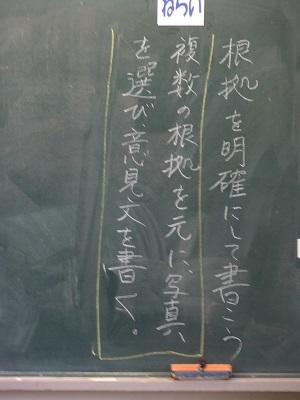 ねらい
根拠を明確にして書こう
複数の根拠を元に、写真
を選び、意見文を書く。